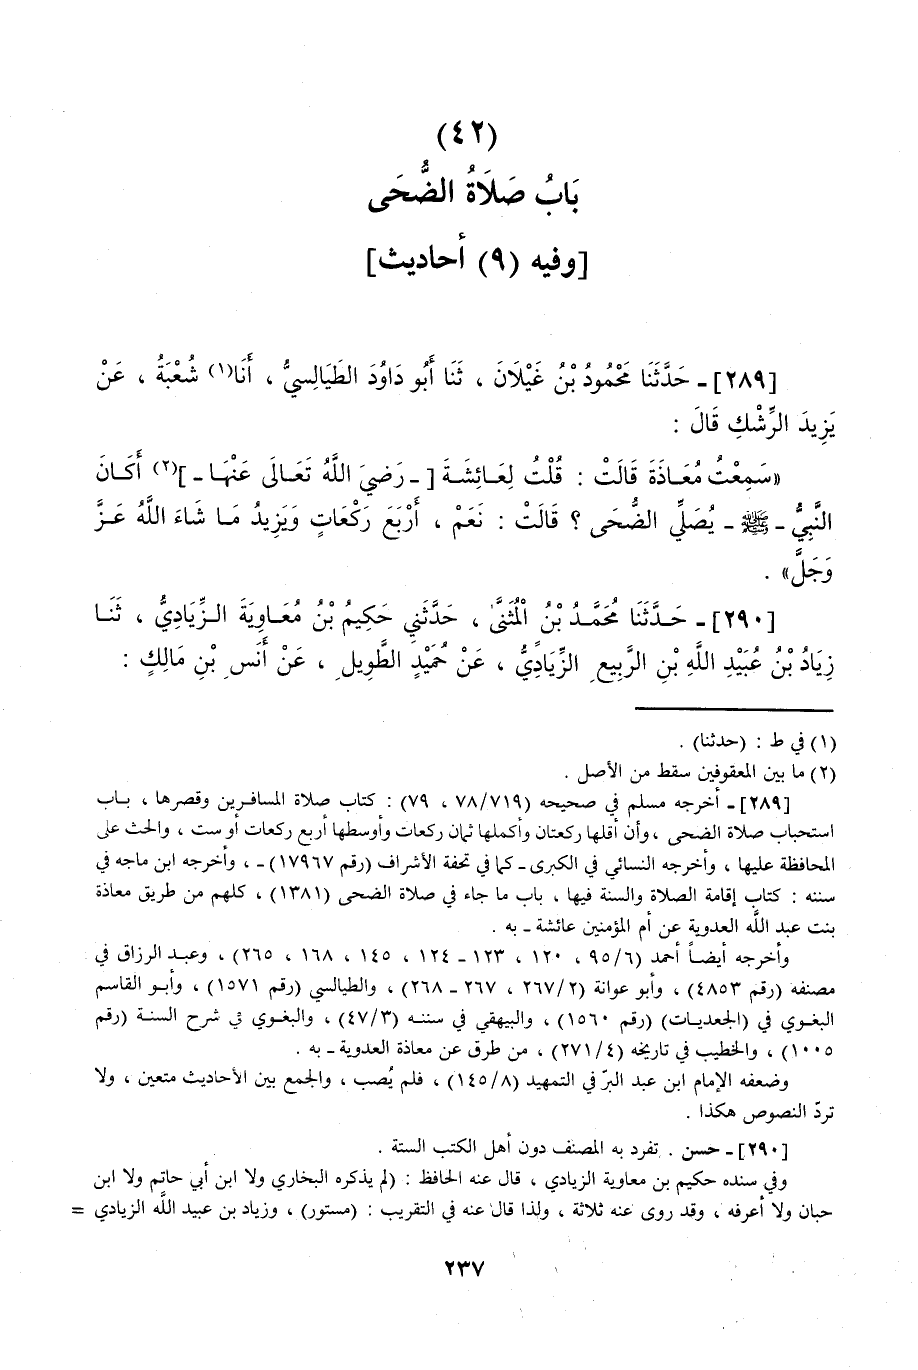 (٤٢)
بَابُ صَلَاةُ الضُّحَى
[وفيه (٩) أحاديث]
[٢٨٩] ـ حَدَّثَنَا مَحْمُودُ بْنُ غَيْلَانَ ، ثَنَا أَبُو دَاوُدَ الطَيَالِسِيُّ ، أَنَا(١) شُعْبَةُ ، عَنْ
يَزِيدَ الرِّشْكِ قَالَ :
«سَمِعْتُ مُعَاذَةَ قَالَتْ : قُلْتُ لِعَائِشَةَ [ـ رَضِيَ اللَّهُ تَعَالَى عَنْهَا ـ](٢) أَكَانَ
النَّبِيُّ ـ ﷺ ـ يُصَلِّي الضُّحَى ؟ قَالَتْ : نَعَمْ ، أَرْبَعَ رَكْعَاتٍ وَيَزِيدُ مَا شَاءَ اللَّهُ عَزَّ
وَجَلَّ» .
[٢٩٠] ـ حَدَّثَنَا مُحَمَّدُ بْنُ الْمُثَنَّى ، حَدَّثَنِي حَكِيمُ بْنُ مُعَاوِيَةَ الزِّيَادِيُّ ، ثَنَا
زِيَادُ بْنُ عُبَيْدِ اللَّهِ بْنِ الرَّبِيعِ الزِّيَادِيُّ ، عَنْ حُمَيْدٍ الطَّوِيلِ ، عَنْ أَنَسِ بْنِ مَالِكٍ :
(١) في ط : (حدثنا) .
(٢) ما بين المعقوفين سقط من الأصل .
[٢٨٩] ـ أخرجه مسلم في صحيحه (٧٨/٧١٩ ، ٧٩) : كتاب صلاة المسافرين وقصرها ، باب
استحباب صلاة الضحى ، وأن أقلها ركعتان وأكملها ثمان ركعات وأوسطها أربع ركعات أو ست ، والحث على
المحافظة عليها ، وأخرجه النسائي في الكبرى ـ كما في تحفة الأشراف (رقم ١٧٩٦٧) ـ ، وأخرجه ابن ماجه في
سننه : كتاب إقامة الصلاة والسنة فيها ، باب ما جاء في صلاة الضحى (١٣٨١) ، كلهم من طريق معاذة
بنت عبد اللَّه العدوية عن أم المؤمنين عائشة ـ به .
وأخرجه أيضاً أحمد (٩٥/٦ ، ١٢٠ ، ١٢٣ ـ ١٢٤ ، ١٤٥ ، ١٦٨ ، ٢٦٥) ، وعبد الرزاق في
مصنفه (رقم ٤٨٥٣) ، وأبو عوانة (٢٦٧/٢ ، ٢٦٧ ـ ٢٦٨) ، والطيالسي (رقم ١٥٧١) ، وأبو القاسم
البغوي في (الجعديات) (رقم ١٥٦٠) ، والبيهقي في سننه (٤٧/٣) ، والبغوي في شرح السنة (رقم
١٠٠٥) ، والخطيب في تاريخه (٢٧١/٤) ، من طرق عن معاذة العدوية ـ به .
وضعفه الإمام ابن عبد البرّ في التمهيد (١٤٥/٨) ، فلم يُصب ، والجمع بين الأحاديث متعين ، ولا
تردّ النصوص هكذا .
[٢٩٠] ـ حسن . تفرد به المصنف دون أهل الكتب الستة .
وفي سنده حكيم بن معاوية الزيادي ، قال عنه الحافظ : (لم يذكره البخاري ولا ابن أبي حاتم ولا ابن
حبان ولا أعرفه ، وقد روى عنه ثلاثة ، ولذا قال عنه في التقريب : (مستور) ، وزياد بن عبيد اللَّه الزيادي =
٢٣٧